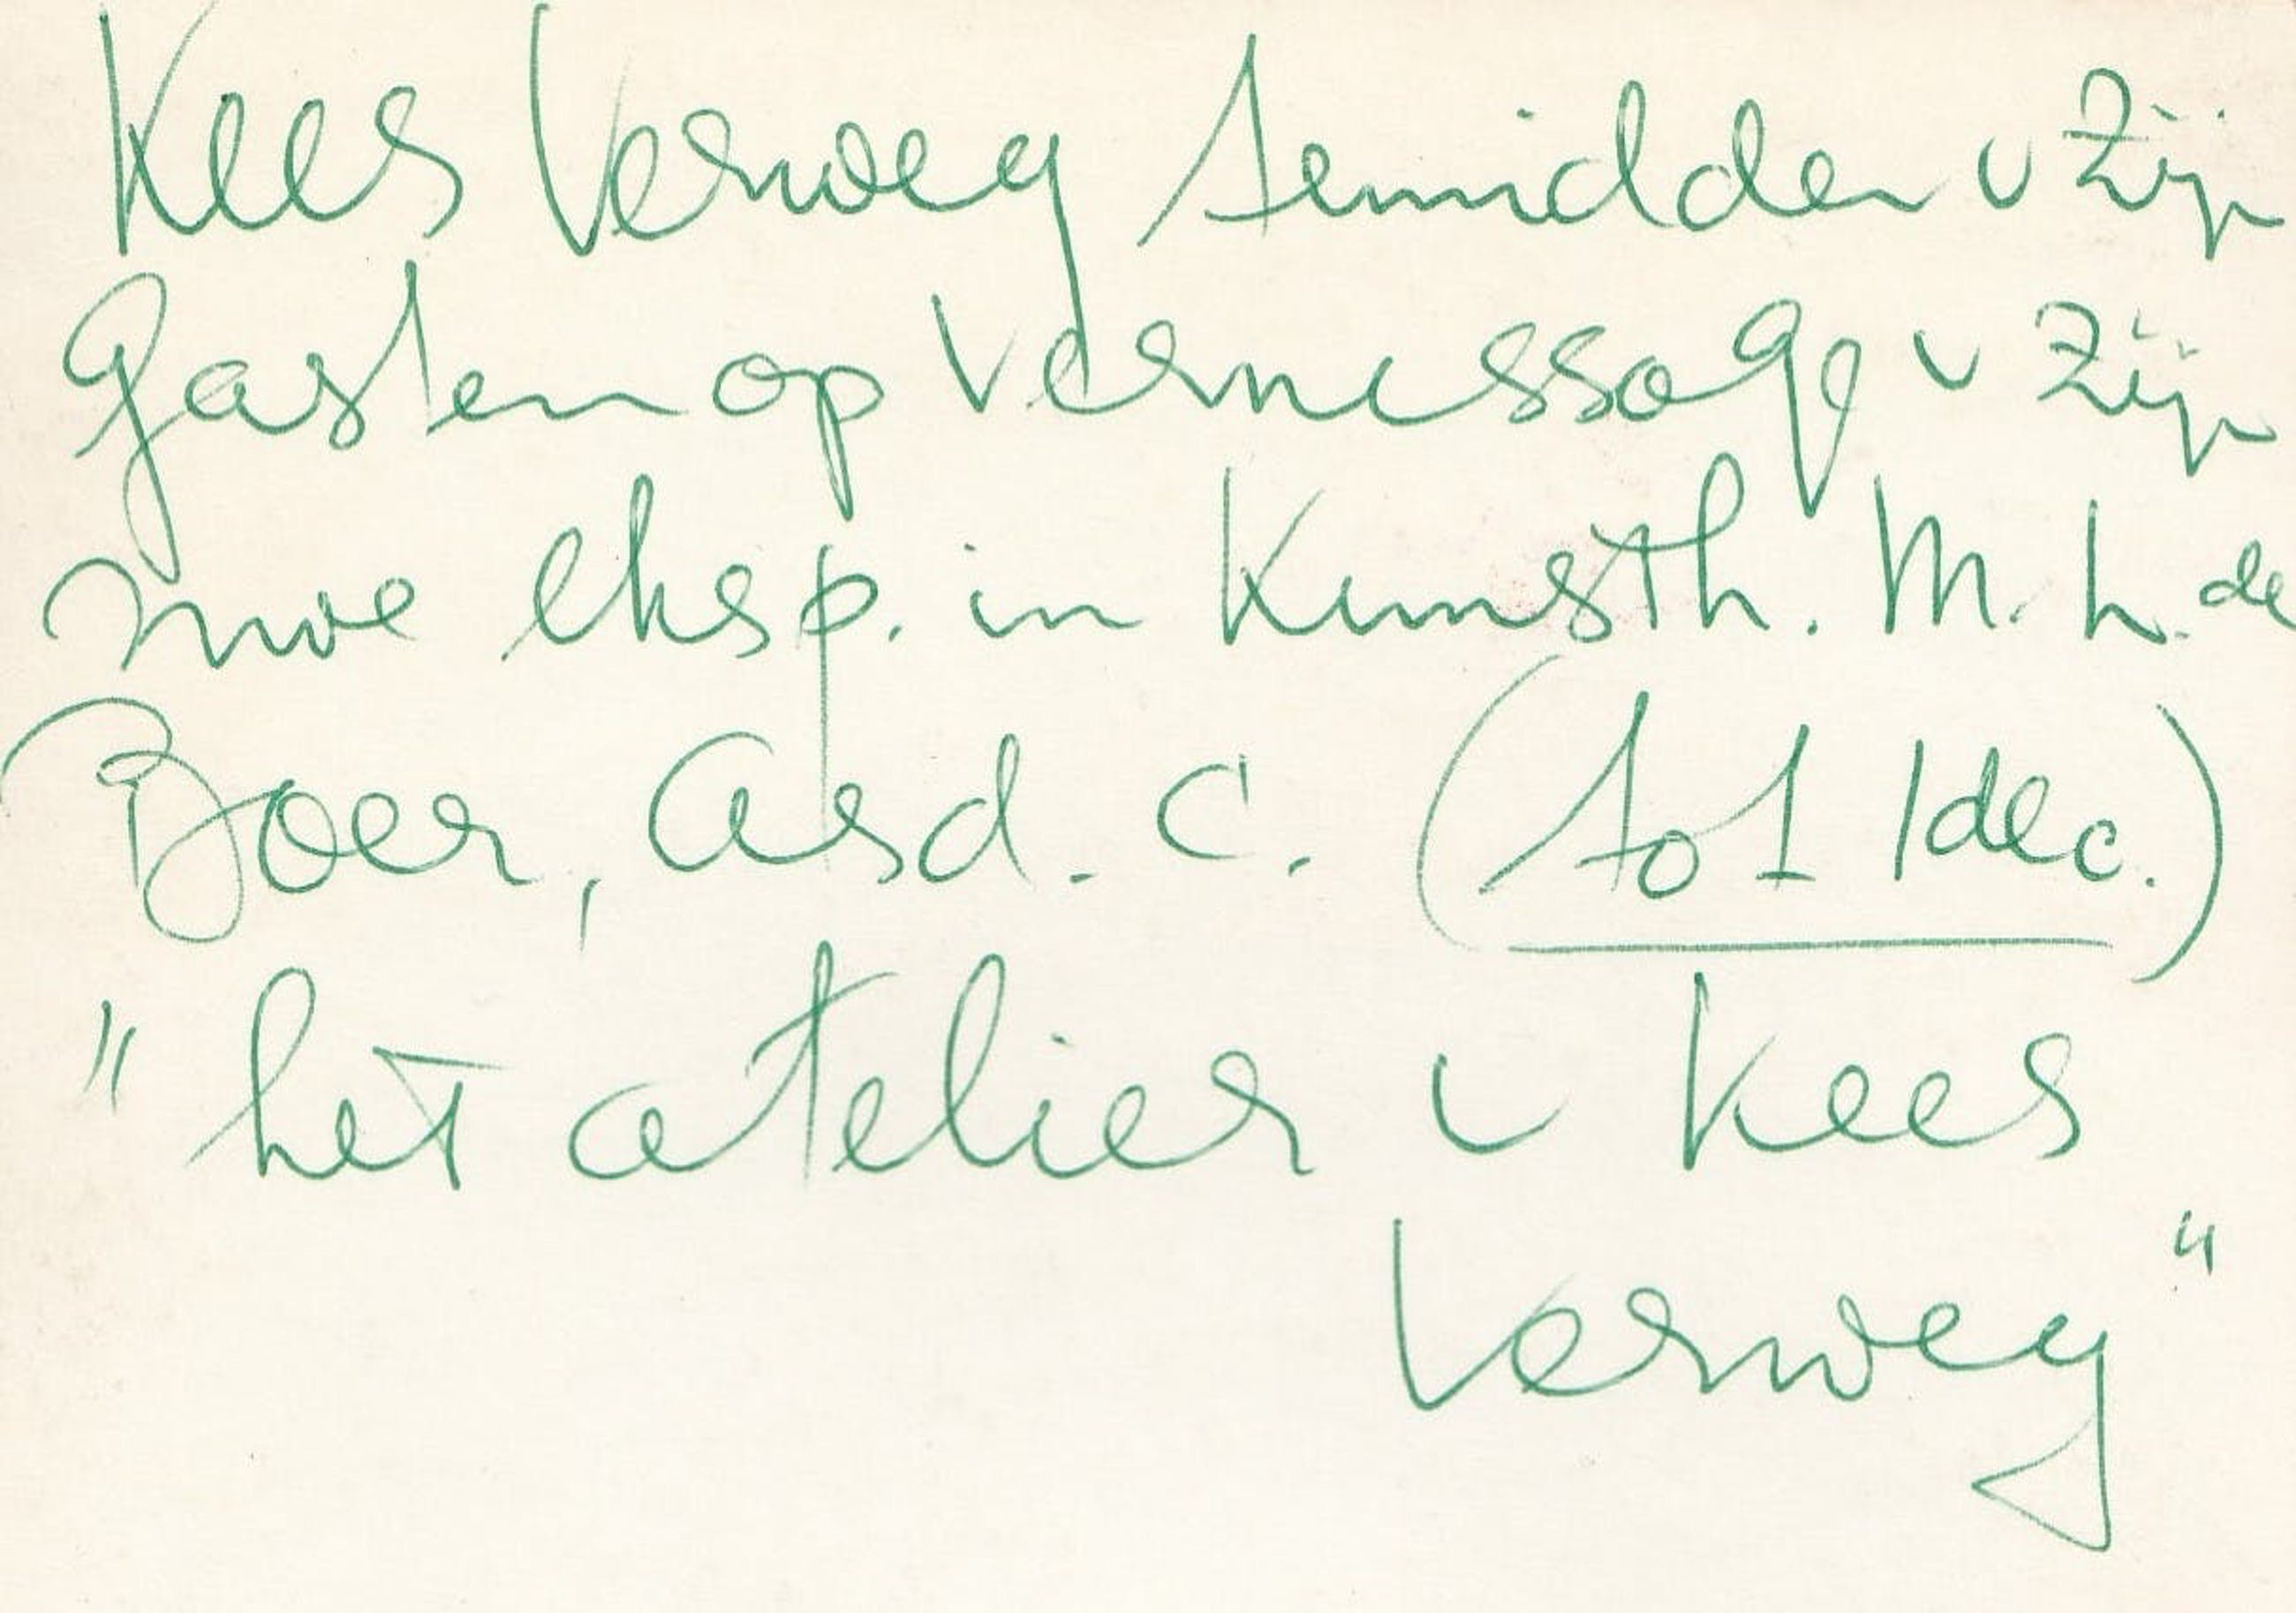 Kees Verwey temidden v zijn
gasten op vernissage v zijn
nwe eksp. in Kunsth. M. L. de
Boer, Asd. C. (tot 1 dec.)
"het atelier v Kees
Verwey"